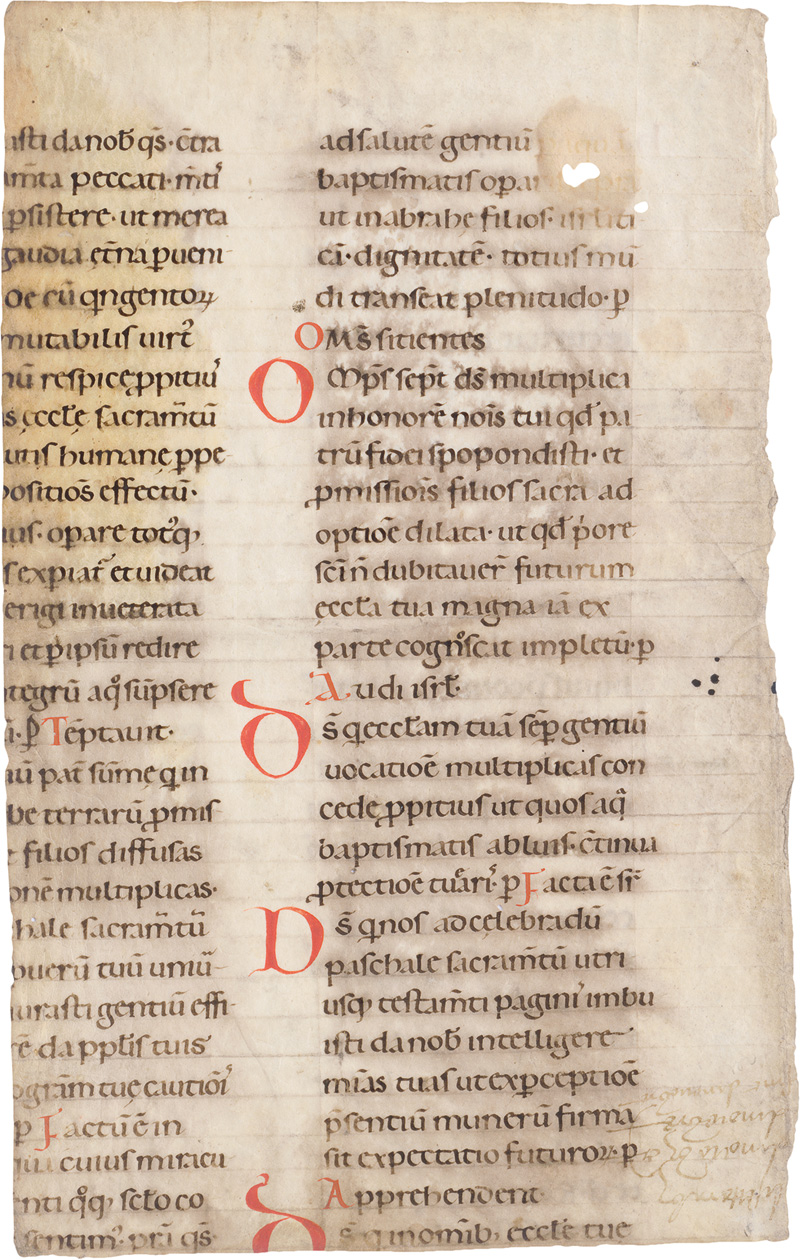 isti da nob̄ q̄s· c̄tra
am̄ta peccati· m̄ti᾽
p̱sistere· ut merea
gaudia et̄na p̱ueni
Oe cū qngentoꝝ
mutabilis uirt᾽
nū respice ꝓpitiu᾽
s eccłe sacram̄tū
utis humane ꝑpe
positiōs effectū·
ius· opare tot᾽qꝫ
s expiat᾽ et uideat
erigi inueterata
i et ꝑ ipsū redire
ntegrū a q᾽ sūpsere
ꝑ Tēptauit·
iū pat̄ sūme q in
be terrarū ꝓmis
filios diffusas
onē multiplicas·
hale sacram̄tū
puerū tuū uniū
iurasti gentiū effi
rē da ppłis tuis
ogr̄am tue cuitiōi᾽
p Factū ē in
cuius miracu
nti q᾽qꝫ scło co
sentim᾽· pr̄i q̄s·
ad salutē gentiū
baptismatis opa
ut in abrahe filios·
ci᾽· dignitatē· totius mū
di transeat plenitudo· ꝑ
OMS̄ sitientes
Omp̄s sep̄t ds̄ multiplici
in honorē nōis tui qd᾽ pa
trū fidei spopondisti· et
ꝓmissiōis filios sacra ad
optiōe dilata· ut qd᾽ p᾽ore
sc̄i n̄ dubitauer᾽ futurum
eccła tua magna iā ex
parte cogn᾽scat impletū· ꝑ
Audi isrł·
Ds̄ q eccłam tuā sēp gentiū
uocatiōe multiplicas con
cede ꝓpitius ut quos aq᾽
baptismatis abluis· c̄tinua
ꝓtectiōe tuari᾽· ꝑ Facta ē sr̄
Ds̄ q nos ad celebradū
paschale sacram̄tū utri
usqꝫ testam̄ti pagini᾽ imbu
isti da nob̄ intelligere
mīas tuas ut ex ꝑceptiōe
p̄sentiū munerū firma
sit expectatio futuroꝝ· ꝑ
Apprehendent·
Ds̄ q in omībꝫ eccłe tue